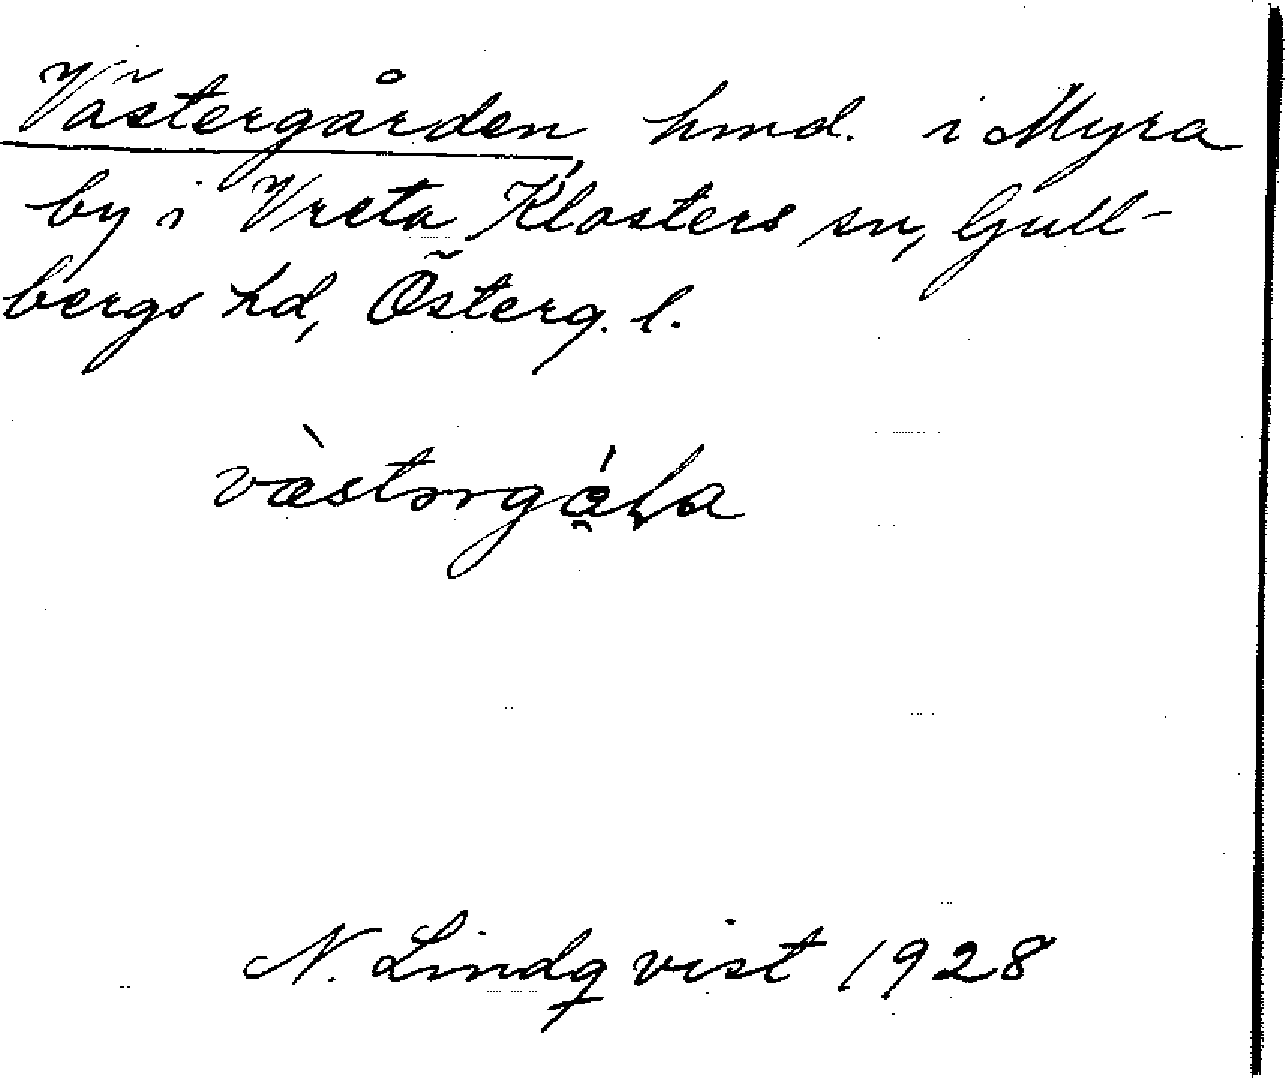 Västergården, hmd. i Myra
by i Vreta Klosters sn, Gull-
bergs hd, Österg. l.
N. Lindqvist 1928